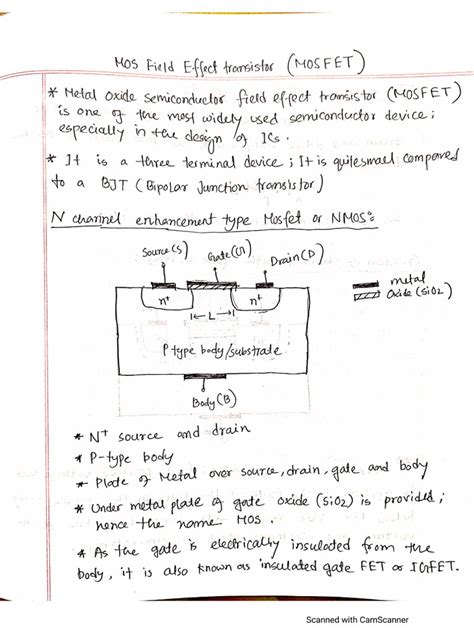 MOS Field Effect transistor (MOSFET)
* Metal Oxide semiconductor field effect transistor (MOSFET)
is one of the most widely used semiconductor device;
especially in the design of ICs.
* It is a three terminal device; It is quitesmall compared
to a BJT (Bipolar Junction transistor)
N channel enhancement type Mosfet or NMOS:
Source(S) Gate(G) Drain(D)
metal
Oxide (SiO2)
n+ n+
L
P type body/substrate
Body(B)
* N+ source and drain
* P-type body
* Plate of Metal over source, drain, gate and body
* Under metal plate of gate oxide (SiO2) is provided;
hence the name MOS.
* As the gate is electrically insulated from the
body, it is also known as insulated gate FET or IGFET.
Scanned with CamScanner